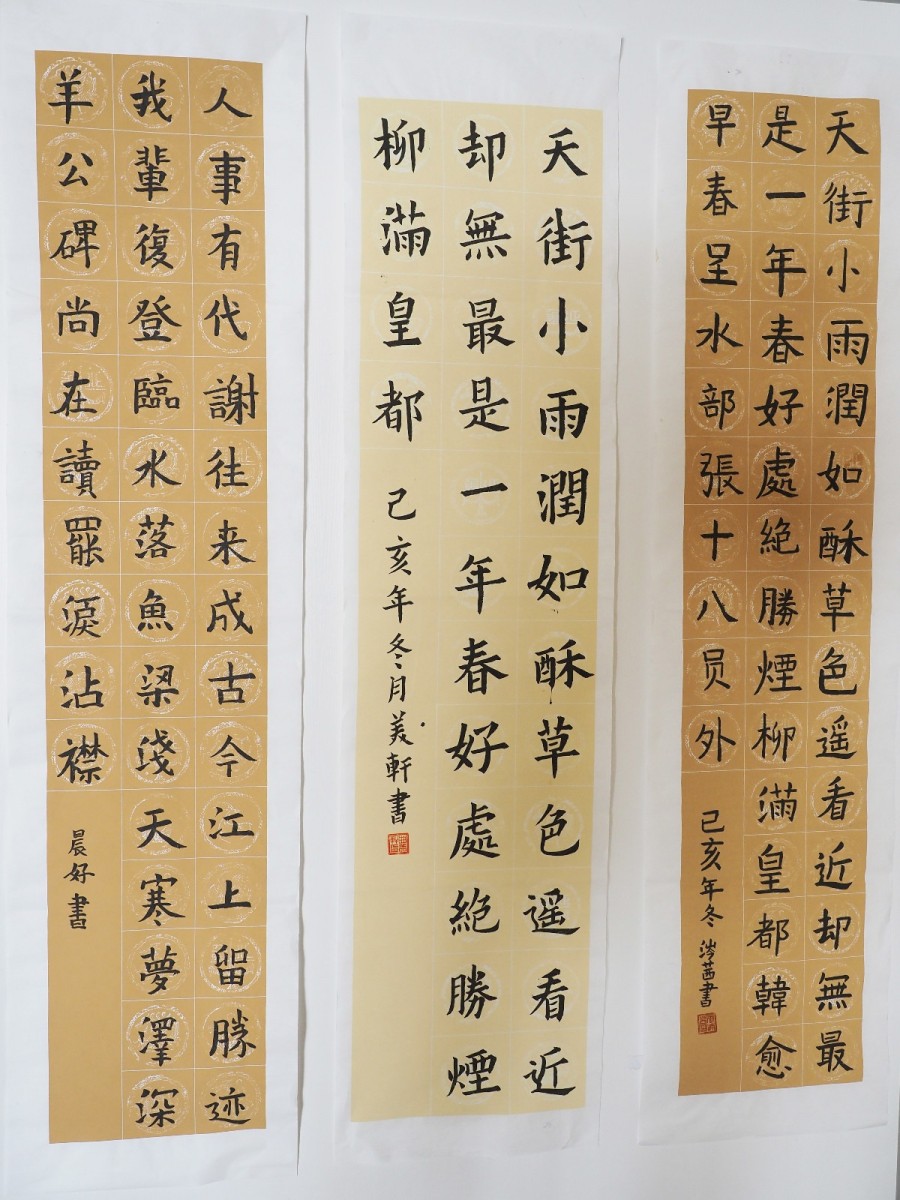 天街小雨潤如酥草色遥看近却無最
是一年春好處絶勝煙柳滿皇都韓愈
早春呈水部張十八员外
己亥年冬涔茜書
天街小雨潤如酥草色遥看近
却無最是一年春好處絶勝煙
柳滿皇都
己亥年冬月美軒書
人事有代謝往来成古今江上留勝迹
我輩復登臨水落魚梁浅天寒夢澤深
羊公碑尚在讀罷淚沾襟
晨好書